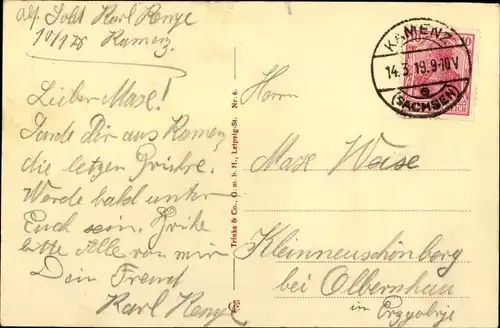 Abs. Sold. Karl Henze
10/178 Kamenz.
Lieber Max!
Sande Dir aus Kamenz
die letzen Grüße.
Werde bald unter
Euch sein. Grüße
bitte Alle von mir
Dein Freund
Karl Henze
Trinks & Co., G. m. b. H., Leipzig-St. Nr. 6.
KAMENZ
14.3.19.9-10V
e
(SACHSEN)
10
Herrn
Max Weise
Kleinneuschönberg
bei Olbernhau
im Erzgebirge